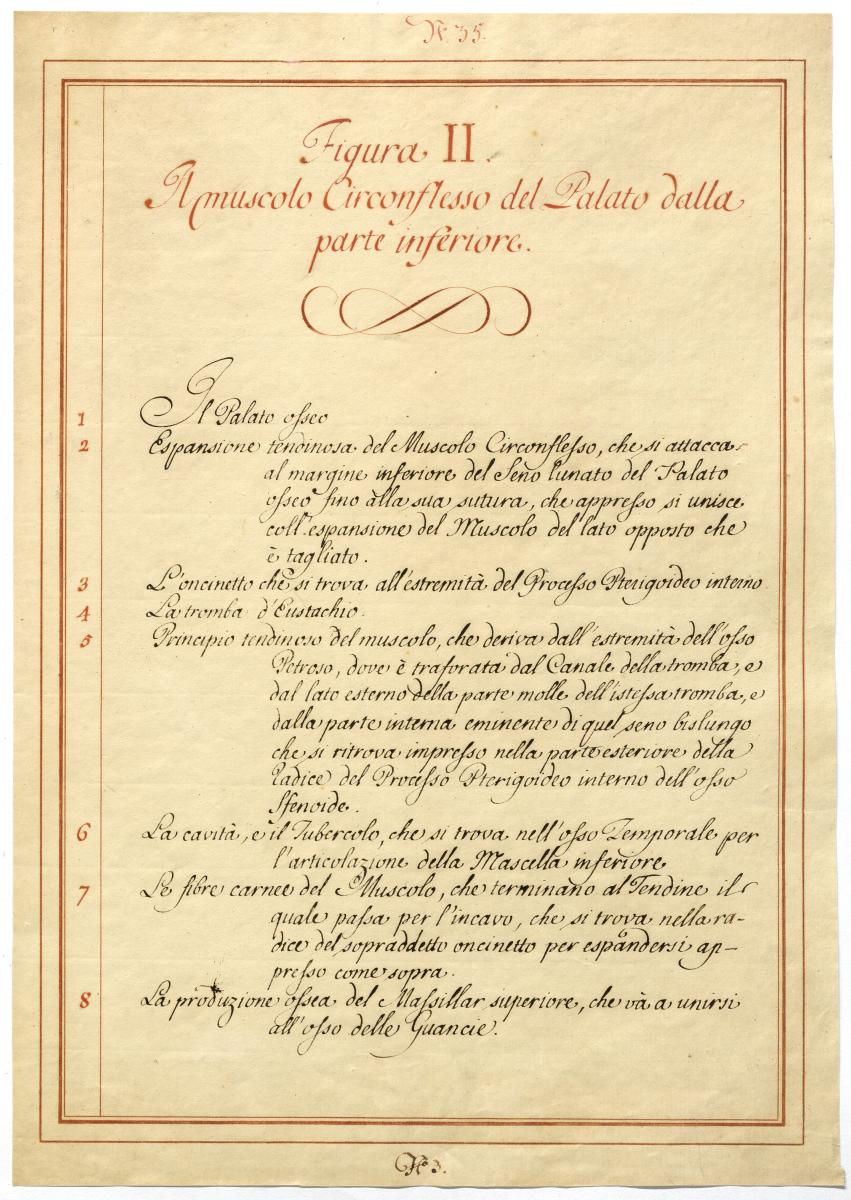 N.º 35.
Figura II.
Il muscolo Circonflesso del Palato dalla
parte inferiore.
1 Il Palato osseo
2 Espansione tendinosa del Muscolo Circonflesso, che si attacca
al margine inferiore del Seno lunato del Palato
osseo fino alla sua sutura, che appresso si unisce
coll'espansione del Muscolo del lato opposto che
è tagliato.
3 L'oncinetto che si trova all'estremità del Processo Pterigoideo interno
4 La tromba d'Eustachio.
5 Principio tendinoso del muscolo, che deriva dall'estremità dell'osso
Petroso, dove è traforata dal Canale della tromba, e
dal lato esterno della parte molle dell'istessa tromba, e
dalla parte interna eminente di quel seno bislungo
che si ritrova impresso nella parte esteriore della
radice del Processo Pterigoideo interno dell'osso
Sfenoide.
6 La cavità, e il Tubercolo, che si trova nell'osso Temporale per
l'articolazione della Mascella inferiore
7 Le fibre carnee del Muscolo, che terminano al Tendine il
quale passa per l'incavo, che si trova nella ra-
dice del sopraddetto oncinetto per espandersi ap-
presso come sopra.
8 La produzione ossea del Massillar superiore, che và a unirsi
all'osso delle Guancie.
Nº 3.